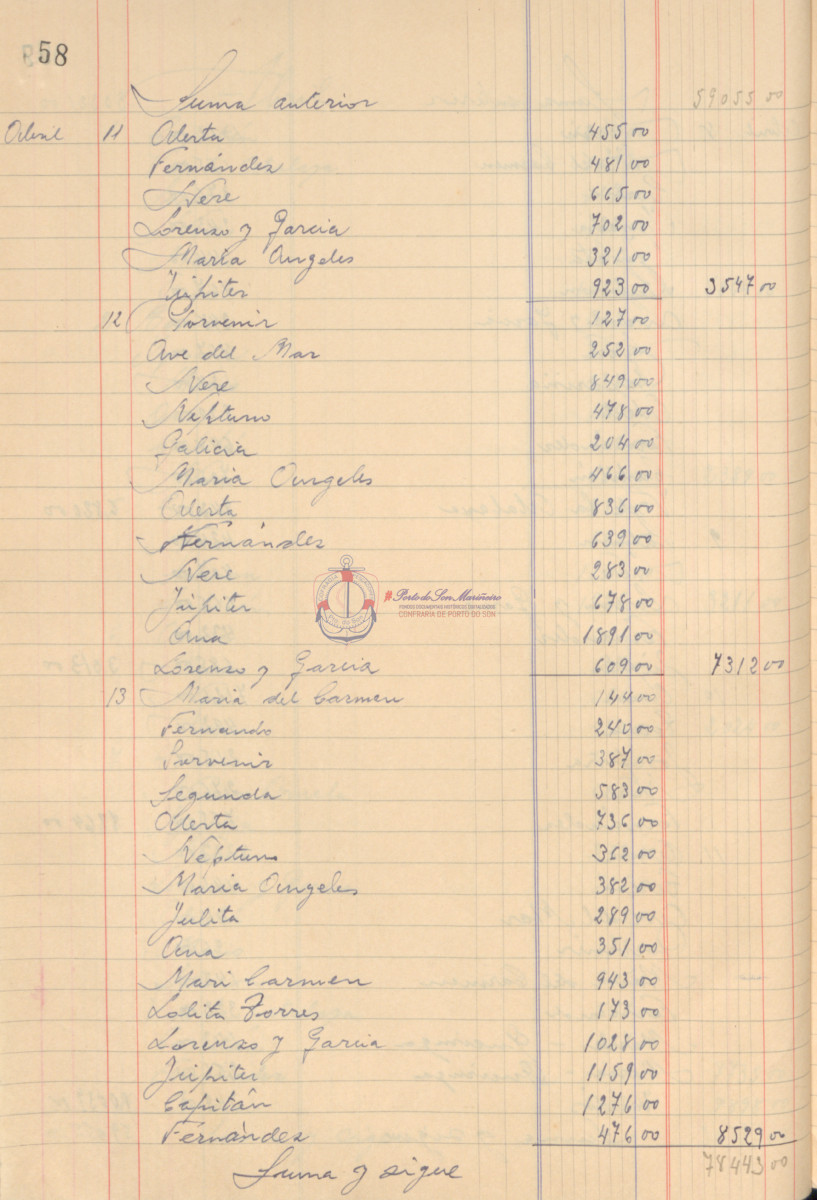 58
Suma anterior 59055 00
Abril 11 Alerta 455 00
Fernández 481 00
Nere 665 00
Lorenzo y Garcia 702 00
Maria Angeles 321 00
Júpiter 923 00 3547 00
12 Porvenir 127 00
Ave del Mar 252 00
Nere 849 00
Neptuno 478 00
Galicia 204 00
Maria Angeles 466 00
Alerta 836 00
Fernández 639 00
Nere 283 00
Júpiter 678 00
Ana 1891 00
Lorenzo y Garcia 609 00 7312 00
13 Maria del Carmen 144 00
Fernando 240 00
Porvenir 387 00
Segunda 583 00
Alerta 736 00
Neptuno 362 00
Maria Angeles 382 00
Julita 289 00
Ana 351 00
Mari Carmen 943 00
Lolita Torres 173 00
Lorenzo y Garcia 1028 00
Júpiter 1159 00
Capitán 1276 00
Fernández 476 00 8529 00
Suma y sigue 78443 00
#Porto do Son Mariñeiro
FONDOS DOCUMENTAIS HISTÓRICOS DIXITALIZADOS
CONFRARIA DE PORTO DO SON